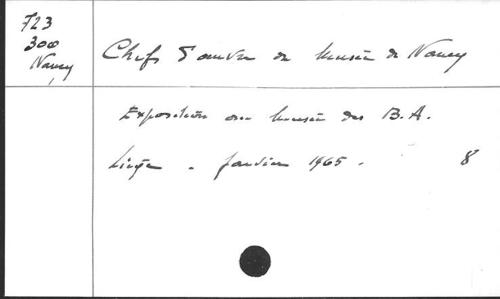 723
300
Nancy
Chefs d'oeuvre du Musée de Nancy
Exposition au Musée des B.A.
Liège - Janvier 1965.
8